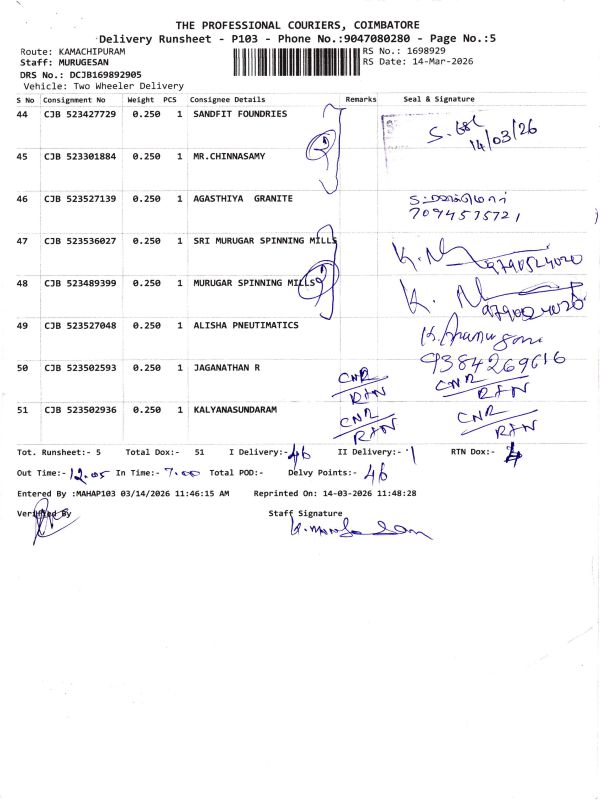 THE PROFESSIONAL COURIERS, COIMBATORE
Delivery Runsheet - P103 - Phone No.:9047080280 - Page No.:5
Route: KAMACHIPURAM RS No.: 1698929
Staff: MURUGESAN RS Date: 14-Mar-2026
DRS No.: DCJB169892905
Vehicle: Two Wheeler Delivery
S No Consignment No Weight PCS Consignee Details Remarks Seal & Signature
44 CJB 523427729 0.250 1 SANDFIT FOUNDRIES 14/03/26
45 CJB 523301884 0.250 1 MR.CHINNASAMY
46 CJB 523527139 0.250 1 AGASTHIYA GRANITE
7094575721
47 CJB 523536027 0.250 1 SRI MURUGAR SPINNING MILLS
48 CJB 523489399 0.250 1 MURUGAR SPINNING MILLS
49 CJB 523527048 0.250 1 ALISHA PNEUTIMATICS
9384269616
50 CJB 523502593 0.250 1 JAGANATHAN R CNR CNR
RTN RTN
51 CJB 523502936 0.250 1 KALYANASUNDARAM CNR CNR
RTN RTN
Tot. Runsheet:- 5 Total Dox:- 51 I Delivery:- 46 II Delivery:- 1 RTN Dox:- 4
Out Time:- 12.05 In Time:- 7.00 Total POD:- Delvy Points:- 46
Entered By :MAHAP103 03/14/2026 11:46:15 AM Reprinted On: 14-03-2026 11:48:28
Verified By Staff Signature